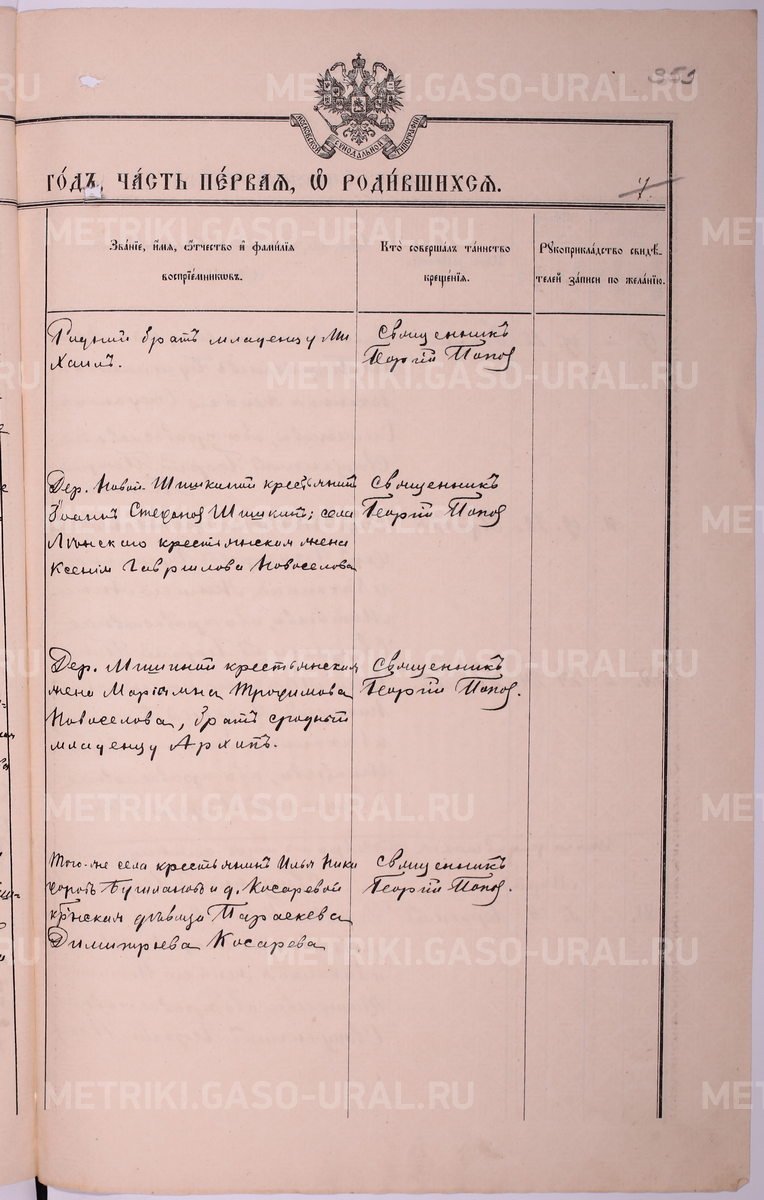 359
МОСКОВСКОЙ СѴНОДАЛЬНОЙ ТИПОГРАФІИ
ГО́ДЪ, ЧА́СТЬ ПЕ́РВАЯ, Ѡ РОДИ́ВШИХСЯ.
7.
Зва́нїе, и́мя, ѻ́тчество и҆ фами́лїя
воспрїе́мникѡвъ.
Кто̀ соверша́лъ та́инство
креще́нїя.
Рꙋкоприкла́дство свидѣ́-
телей за́писи по жела́нїю.
Родный братъ младенцу Ми
хаилъ.
Священникъ
Георгій Попов
Дер. Новой Шишкиной крестьянинъ
Іоаннъ Стефанов Шишкин; села
крестьянская жена
Ксенія Гаврилова Новоселова
Священникъ
Георгій Попов
Дер. Мишиной крестьянская
жена Маріамна Трофимова
Новоселова, братъ сродный
младенцу Архипъ.
Священникъ
Георгій Попов.
Того-же села крестьянинъ Илья Ники
форовъ и д. Косаревой
кр҃нская дѣвица Параскева
Димитріева Косарева
Священникъ
Георгій Попов.
METRIKI.GASO-URAL.RU